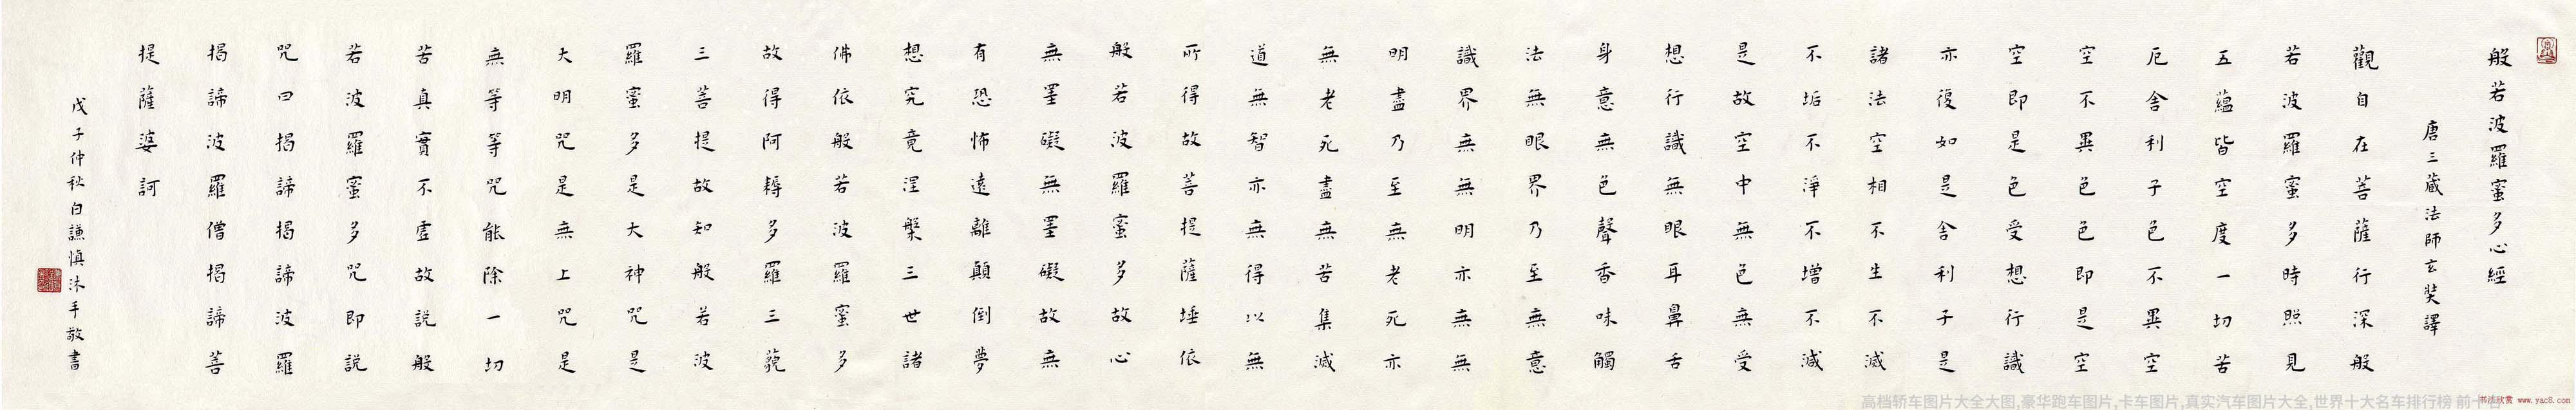 般若波羅蜜多心經
唐三藏法師玄奘譯
觀自在菩薩行深般
若波羅蜜多時照見
五蘊皆空度一切苦
厄舍利子色不異空
空不異色色即是空
空即是色受想行識
亦復如是舍利子是
諸法空相不生不滅
不垢不淨不增不減
是故空中無色無受
想行識無眼耳鼻舌
身意無色聲香味觸
法無眼界乃至無意
識界無無明亦無無
明盡乃至無老死亦
無老死盡無苦集滅
道無智亦無得以無
所得故菩提薩埵依
般若波羅蜜多故心
無罣礙無罣礙故無
有恐怖遠離顛倒夢
想究竟涅槃三世諸
佛依般若波羅蜜多
故得阿耨多羅三藐
三菩提故知般若波
羅蜜多是大神咒是
大明咒是無上咒是
無等等咒能除一切
苦真實不虛故説般
若波羅蜜多咒即説
咒曰揭諦揭諦波羅
揭諦波羅僧揭諦菩
提薩婆訶
戊子仲秋白謙慎沐手敬書
高档轿车图片大全大图,豪华跑车图片,卡车图片,真实汽车图片大全,世界十大名车排行榜 前十
书法欣赏 www.yac8.com